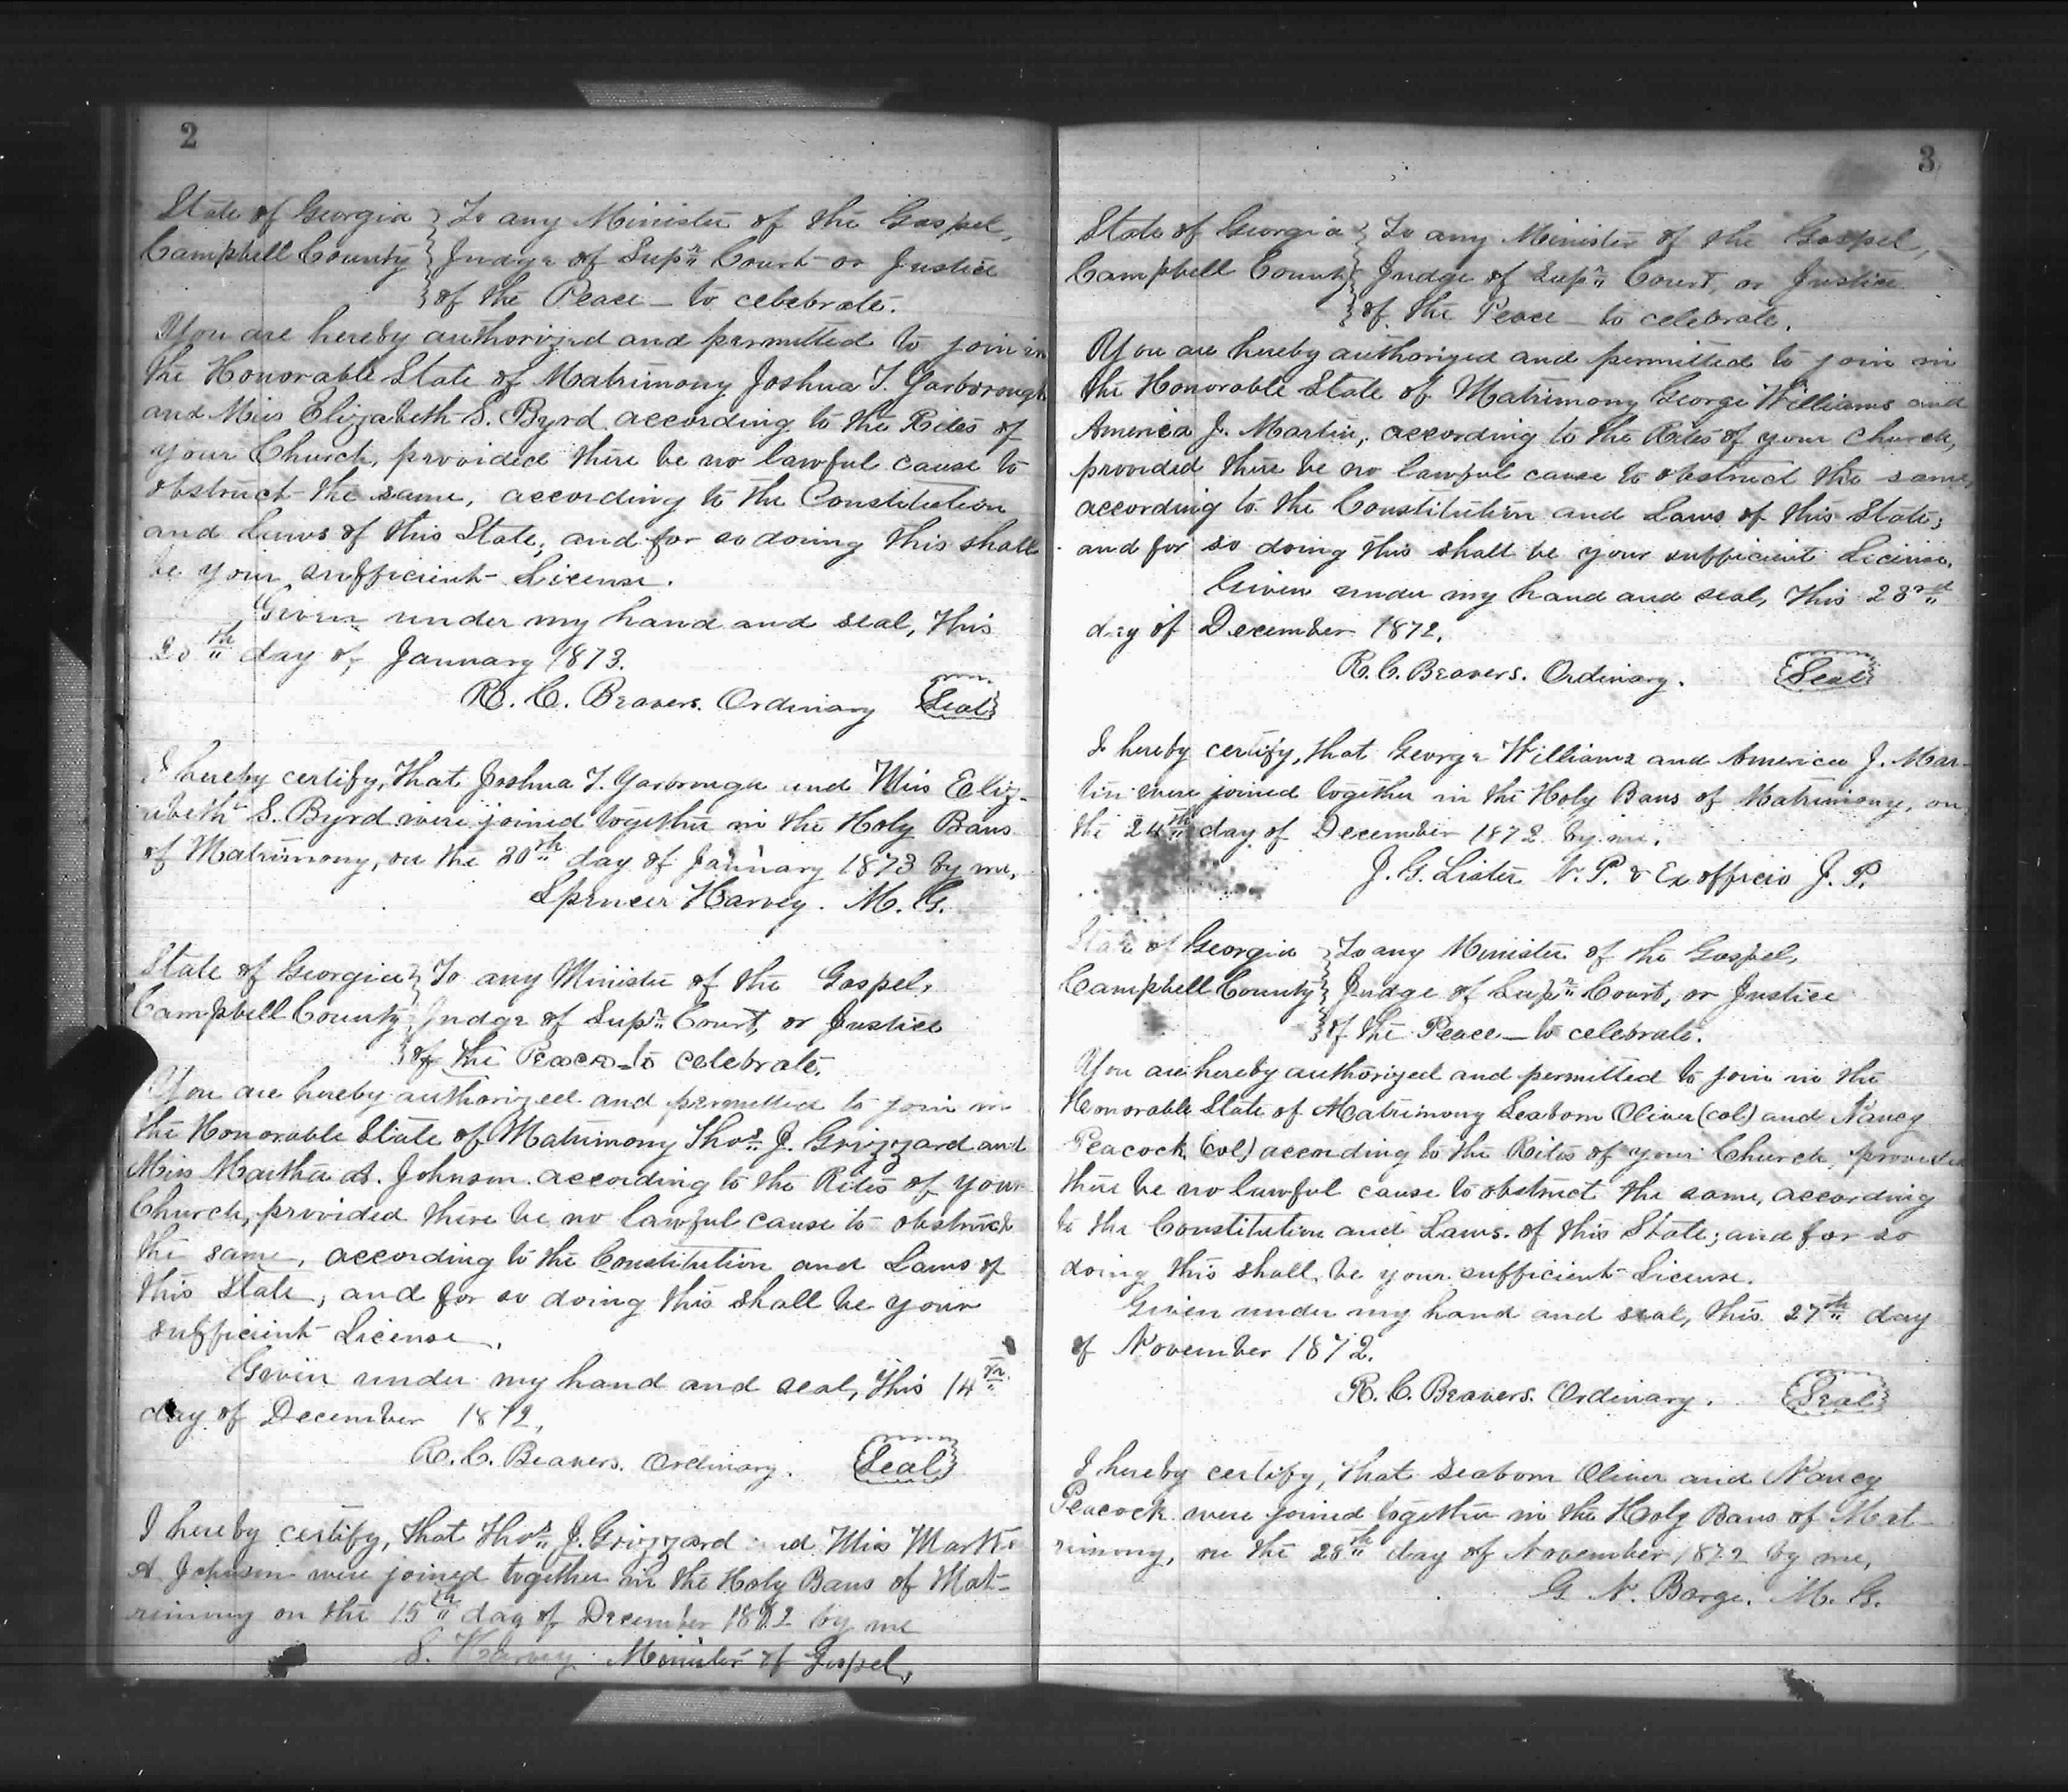 2
State of Georgia } To any Minister of the Gospel,
Campbell County } Judge of Supr. Court or Justice
} of the Peace — to celebrate.
You are hereby authorized and permitted to join in
the Honorable State of Matrimony Joshua T. Yarborough
and Miss Elizabeth S. Byrd according to the Rites of
your Church, provided there be no lawful cause to
obstruct the same, according to the Constitution
and Laws of this State, and for so doing this shall
be your sufficient License.
Given under my hand and seal, this
20th day of January 1873.
R. C. Beavers. Ordinary Seal
I hereby certify, that Joshua T. Yarborough and Miss Eliz-
abeth S. Byrd were joined together in the Holy Bans
of Matrimony, on the 30th day of January 1873 by me,
Spencer Harvey. M. G.
State of Georgia } To any Minister of the Gospel,
Campbell County } Judge of Supr. Court, or Justice
} of the Peace — to celebrate.
You are hereby authorized and permitted to join in
the Honorable State of Matrimony Thos. J. Grizzard and
Miss Martha A. Johnson according to the Rites of your
Church, provided there be no lawful cause to obstruct
the same, according to the Constitution and Laws of
this State, and for so doing this shall be your
sufficient License.
Given under my hand and seal, this 14th
day of December 1872,
R. C. Beavers. Ordinary. Seal
I hereby certify, that Thos. J. Grizzard and Miss Martha
A Johnson were joined together in the Holy Bans of Mat-
rimony on the 15th day of December 1872 by me
S. Harvey Minister of Gospel,
3
State of Georgia } To any Minister of the Gospel,
Campbell County } Judge of Supr. Court, or Justice
} of the Peace — to celebrate.
You are hereby authorized and permitted to join in
the Honorable State of Matrimony George Williams and
America J. Martin, according to the Rites of your church,
provided there be no lawful cause to obstruct the same,
according to the Constitution and Laws of this State;
and for so doing this shall be your sufficient License.
Given under my hand and seal, this 23rd
day of December 1872.
R. C. Beavers. Ordinary. Seal
I hereby certify, that George Williams and America J. Mar-
tin were joined together in the Holy Bans of Matrimony, on
the 24th day of December 1872 by me.
J. G. Lister N. P. & Ex officio J. P.
State of Georgia } To any Minister of the Gospel,
Campbell County } Judge of Supr. Court, or Justice
} of the Peace — to celebrate.
You are hereby authorized and permitted to join in the
Honorable State of Matrimony Seaborn Oliver (col) and Nancy
Peacock (col) according to the Rites of your Church, provided
there be no lawful cause to obstruct the same, according
to the Constitution and Laws of this State; and for so
doing this shall be your sufficient License.
Given under my hand and seal, this 27th day
of November 1872.
R. C. Beavers. Ordinary. Seal
I hereby certify, that Seaborn Oliver and Nancy
Peacock were joined together in the Holy Bans of Mat-
rimony, on the 28th day of November 1872 by me,
G N. Barge. M. G.